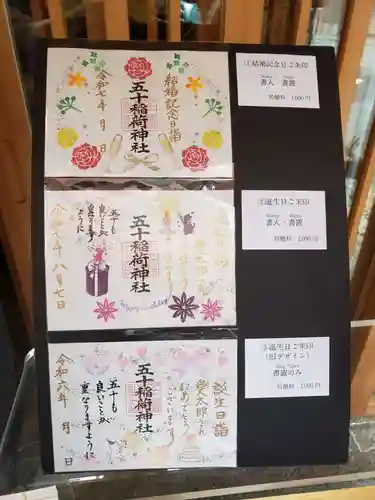 結婚記念日詣
五十稲荷神社
令和七年 月 日
①結婚記念日ご朱印
書入 / 書置
初穂料 1,000円
五十稲荷神社
五十も
良いことが
重なりますように
令和七年八月七日
②誕生日ご朱印
書入 / 書置
初穂料 1,000円
誕生日詣
愛太郎さん
おめでとう
ございます
五十稲荷神社
五十も
良いことが
重なりますように
令和六年 月 日
③誕生日ご朱印
(旧デザイン)
書置のみ
初穂料 1,000円